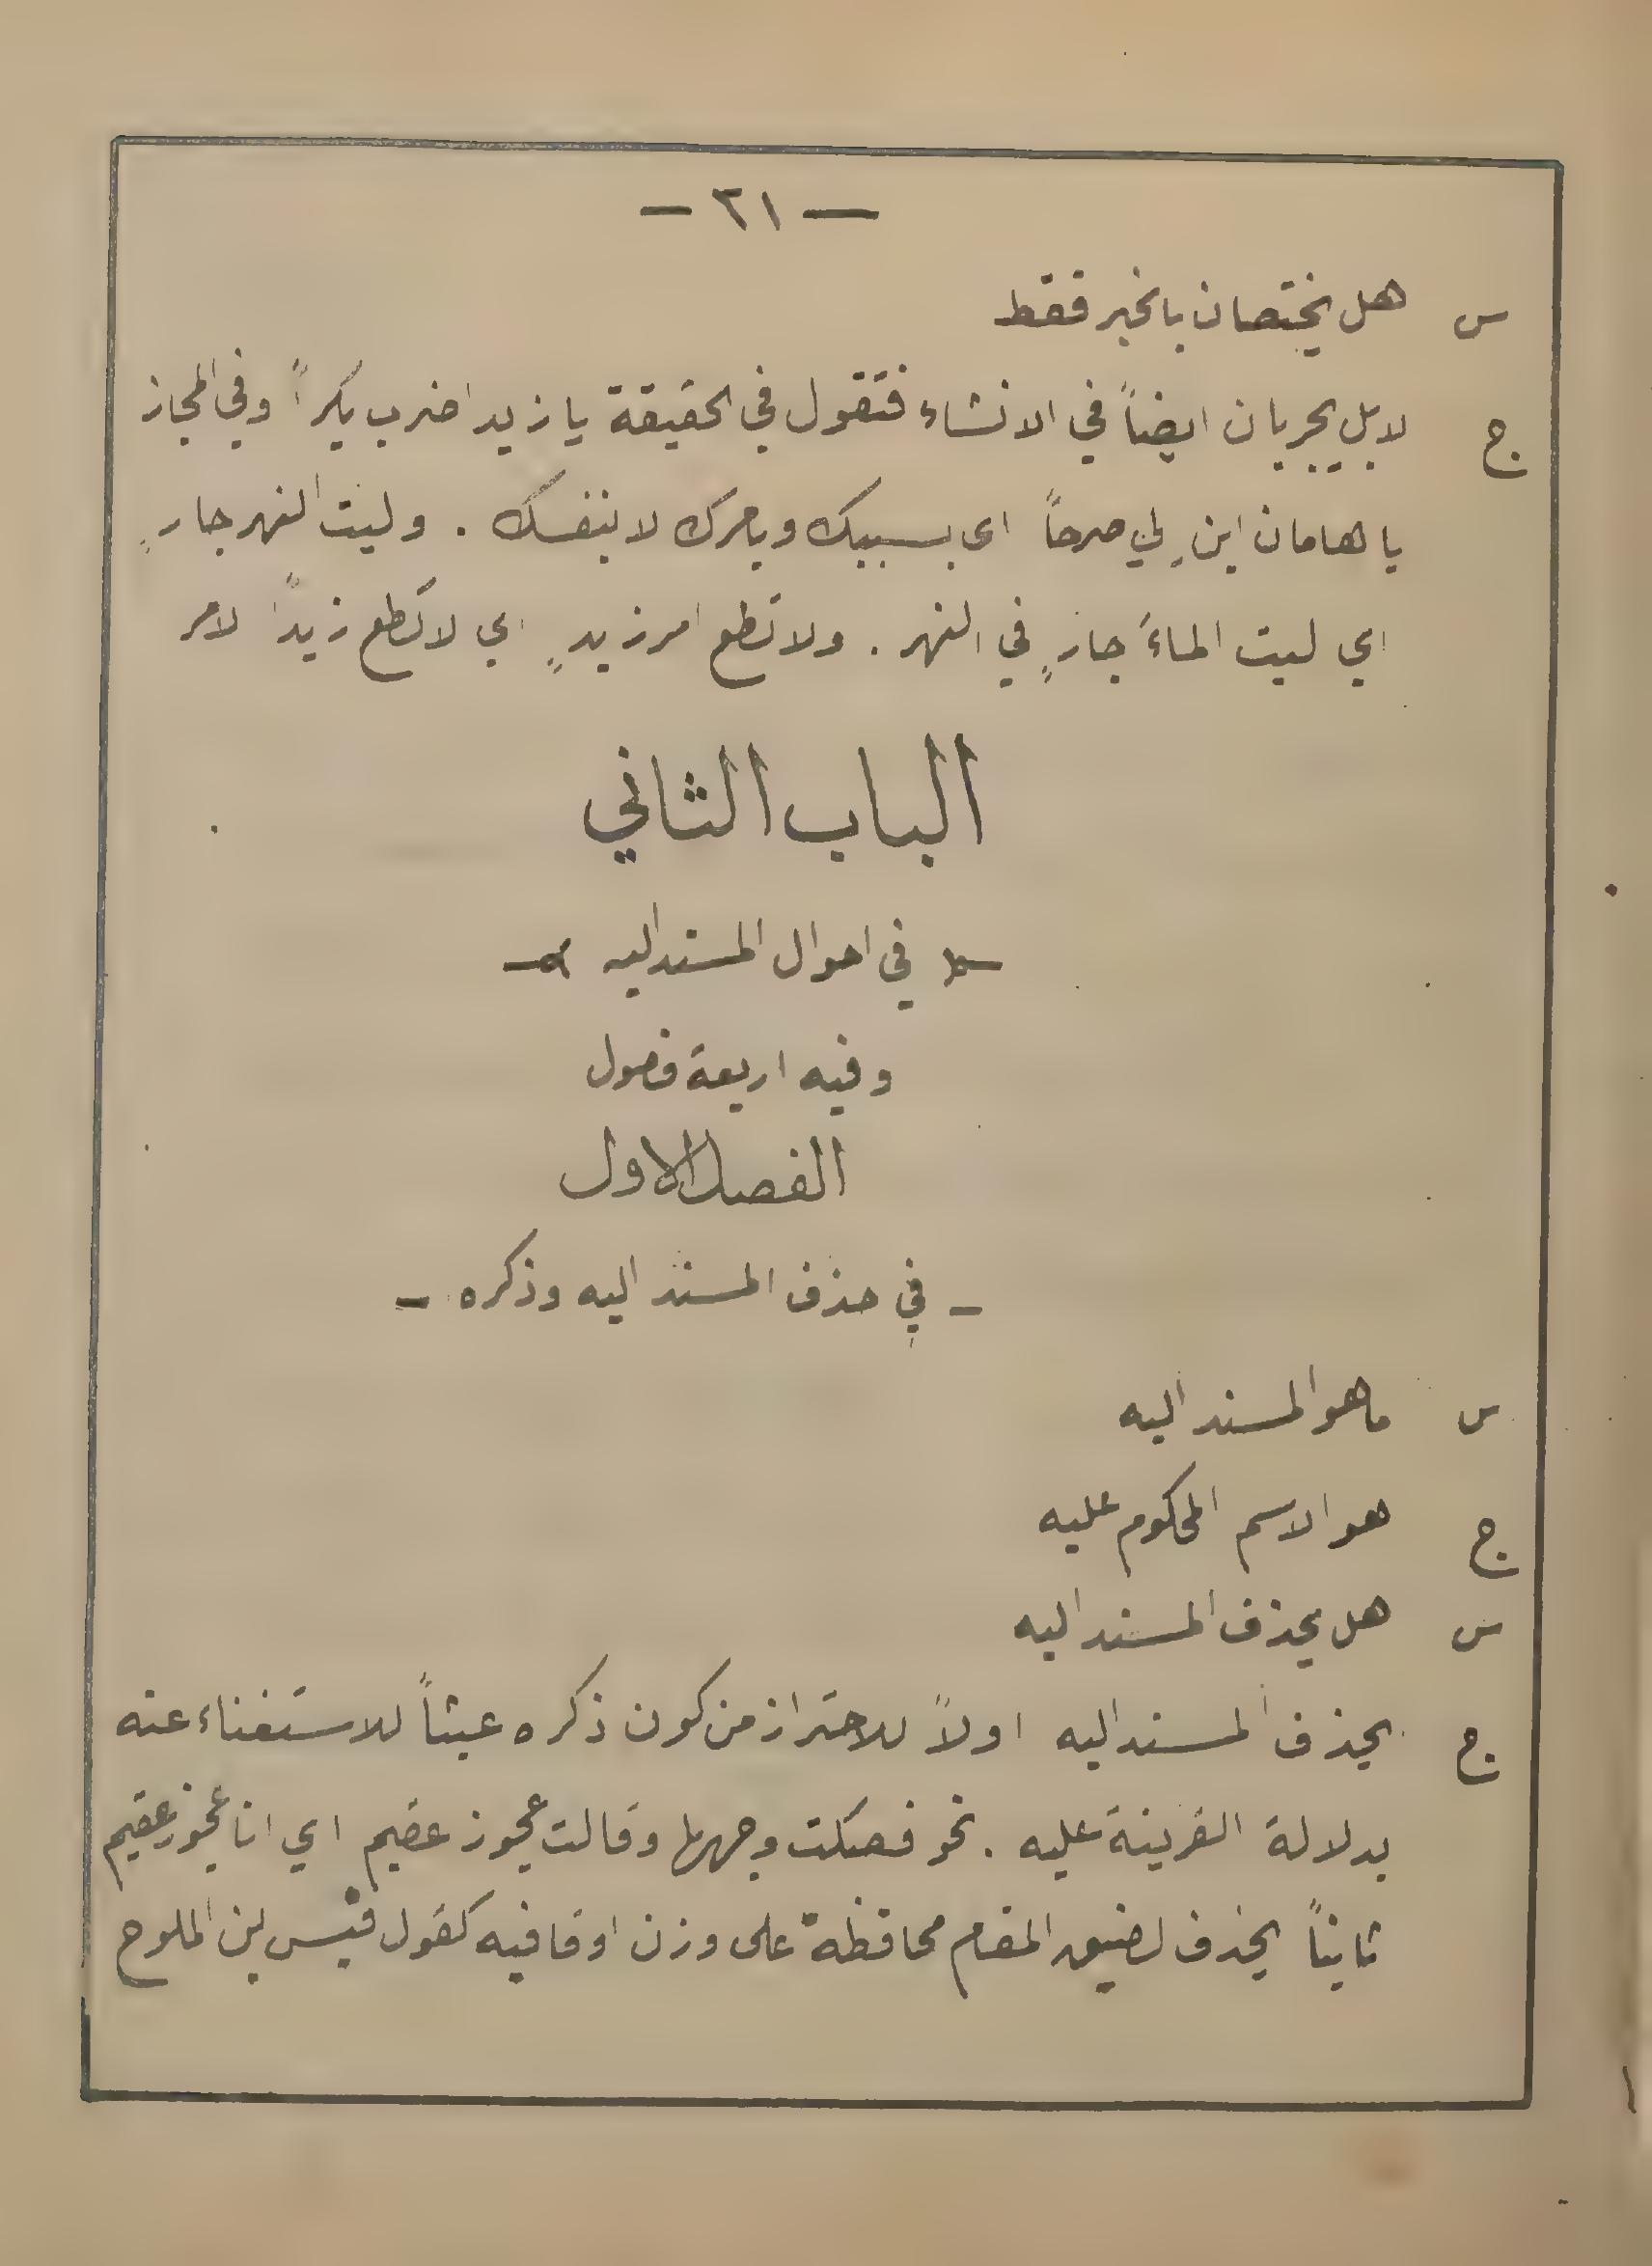 — ٢١ —
س هل يختصان بالخبر فقط
ج لا بل يجريان ايضاً في الانشاء فتقول في الحقيقة يا زيد اضرب بكراً وفي المجاز
يا هامان ابنِ لي صرحاً اى بسببك وبامرك لا بنفسك . وليت النهر جارٍ
اي ليت الماءَ جارٍ في النهر . ولا تطع امر زيدٍ اي لا تطع زيداً لامر
الباب الثاني
في احوال المسند اليه
وفيه اربعة فصول
الفصل الاول
- في حذف المسند اليه وذكره -
س ما هو المسند اليه
ج هو الاسم المحكوم عليه
س هل يحذف المسند اليه
ج يحذف المسند اليه اولاً للاحتراز من كون ذكره عبثاً للاستغناء عنه
بدلالة القرينة عليه . نحو فصكت وجهها وقالت عجوز عقيم اي انا عجوز عقيم
ثانياً يحذف لضيق المقام محافظة على وزن او قافيه كقول قيس بن الملوح